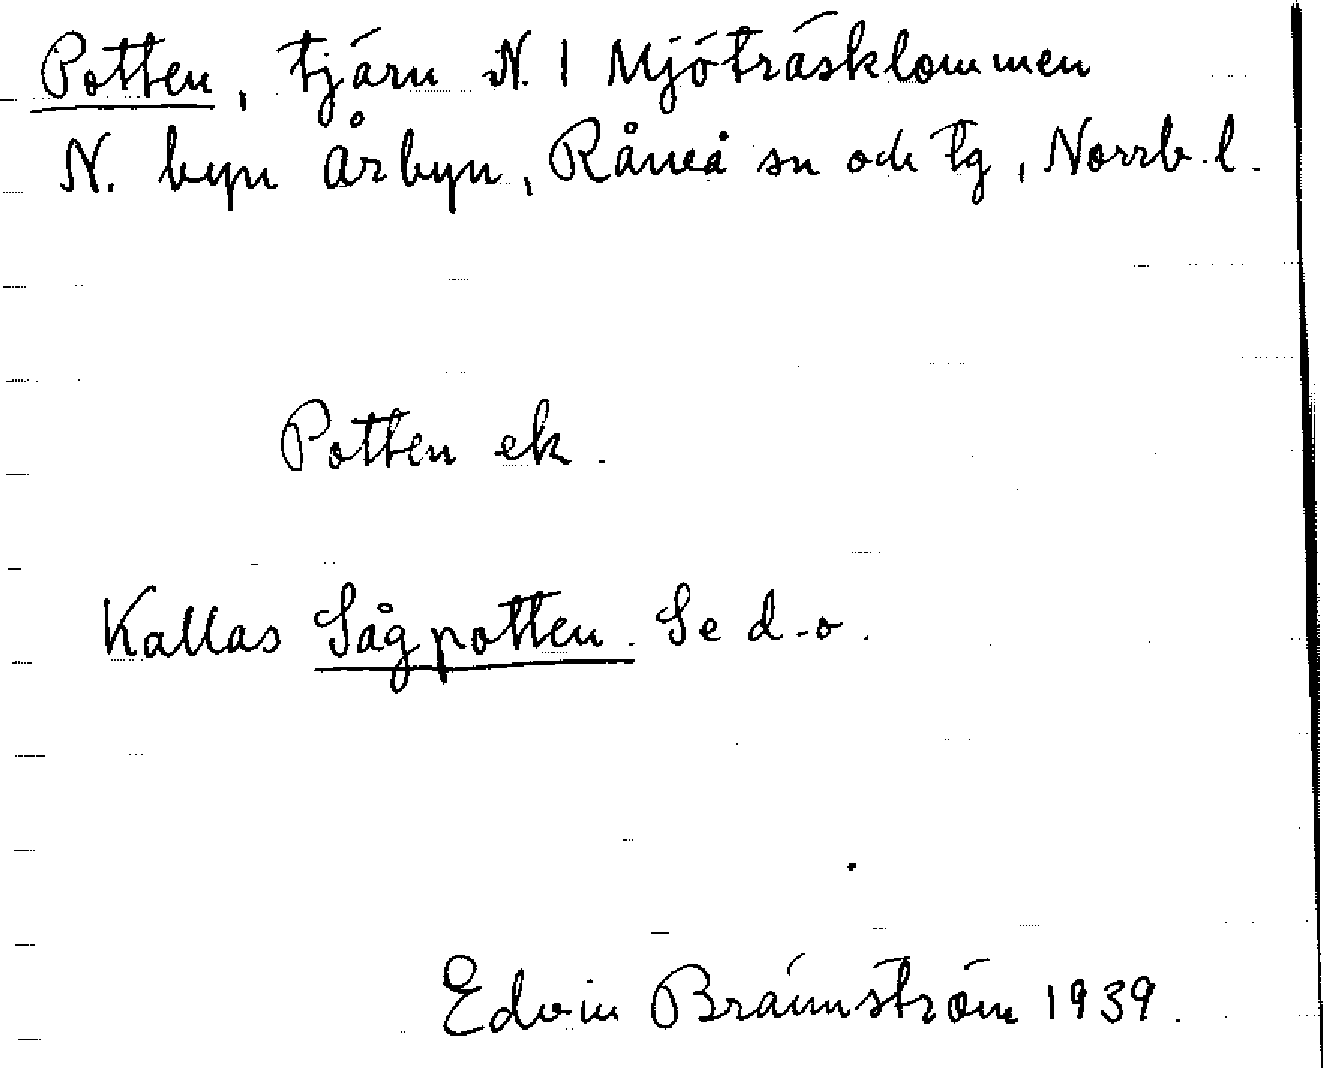 Potten, tjärn N. I Mjöträsklommen
N. byn Årbyn, Råneå sn och tg, Norrb. l.
Potten ek.
Kallas Sågpotten. Se d-o.
Edvin Brännström 1939.